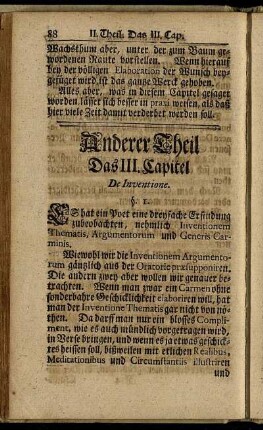 88 II. Theil. Das III. Cap.
Wachsthum aber, unter der zum Baum ge-
wordenen Raute vorstellen. Wenn hierauf
bey der völligen Elaboration der Wunsch bey-
gefüget wird, ist das gantze Werck gehoben.
Alles aber, was in diesem Capitel gesaget
worden, lässet sich besser in praxi weisen, als daß
hier viele Zeit damit verderbet werden soll.
Anderer Theil
Das III. Capitel
De Inventione.
§. 1.
ES hat ein Poet eine dreyfache Erfindung
zubeobachten, nehmlich Inventionem
Thematis, Argumentorum und Generis Car-
minis.
Wiewohl wir die Inventionem Argumento-
rum gäntzlich aus der Oratorie præsupponiren.
Die andern zwey aber wollen wir genauer be-
trachten. Wenn man zwar ein Carmen ohne
sonderbahre Geschicklichkeit elaboriren will, hat
man der Inventione Thematis gar nicht von nö-
then. Da darff man nur ein blosses Compli-
ment, wie es auch mündlich vorgetragen wird,
in Verse bringen, und wenn es ja etwas geschick-
tes heissen soll, bißweilen mit etlichen Realibus,
Meditationibus und Circumstantiis illustriren
und